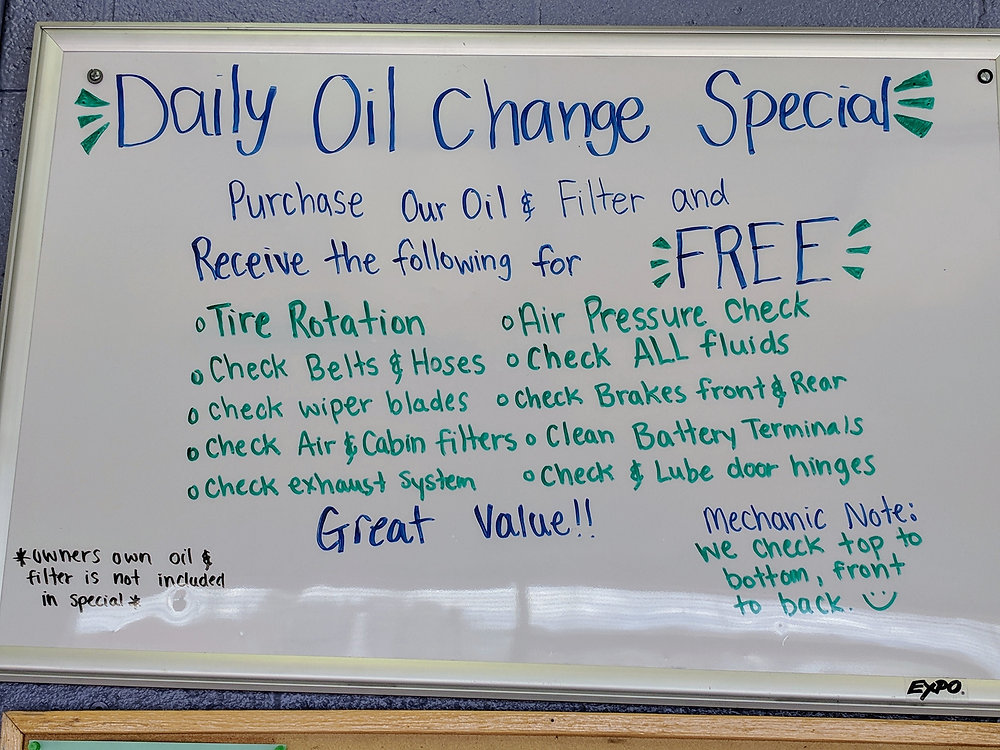 Daily Oil Change Special
Purchase Our Oil & Filter and
Receive the following for FREE
o Tire Rotation o Air Pressure Check
o Check Belts & Hoses o Check ALL fluids
o Check wiper blades o Check Brakes front & Rear
o Check Air & Cabin filters o Clean Battery Terminals
o Check exhaust System o Check & Lube door hinges
Great Value!!
*owners own oil &
filter is not included
in special*
Mechanic Note:
We check top to
bottom, front
to back.
EXPO.